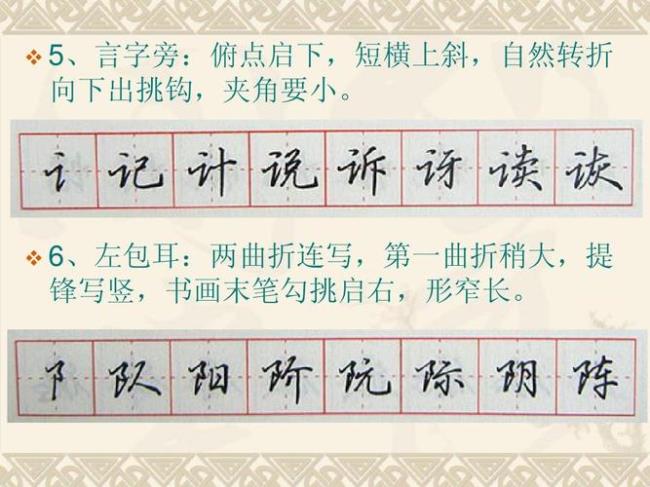 5、言字旁：俯点启下，短横上斜，自然转折
向下出挑钩，夹角要小。
讠记计说诉讶读诙
6、左包耳：两曲折连写，第一曲折稍大，提
锋写竖，书画末笔勾挑启右，形窄长。
阝队阳阶阮际阴阵